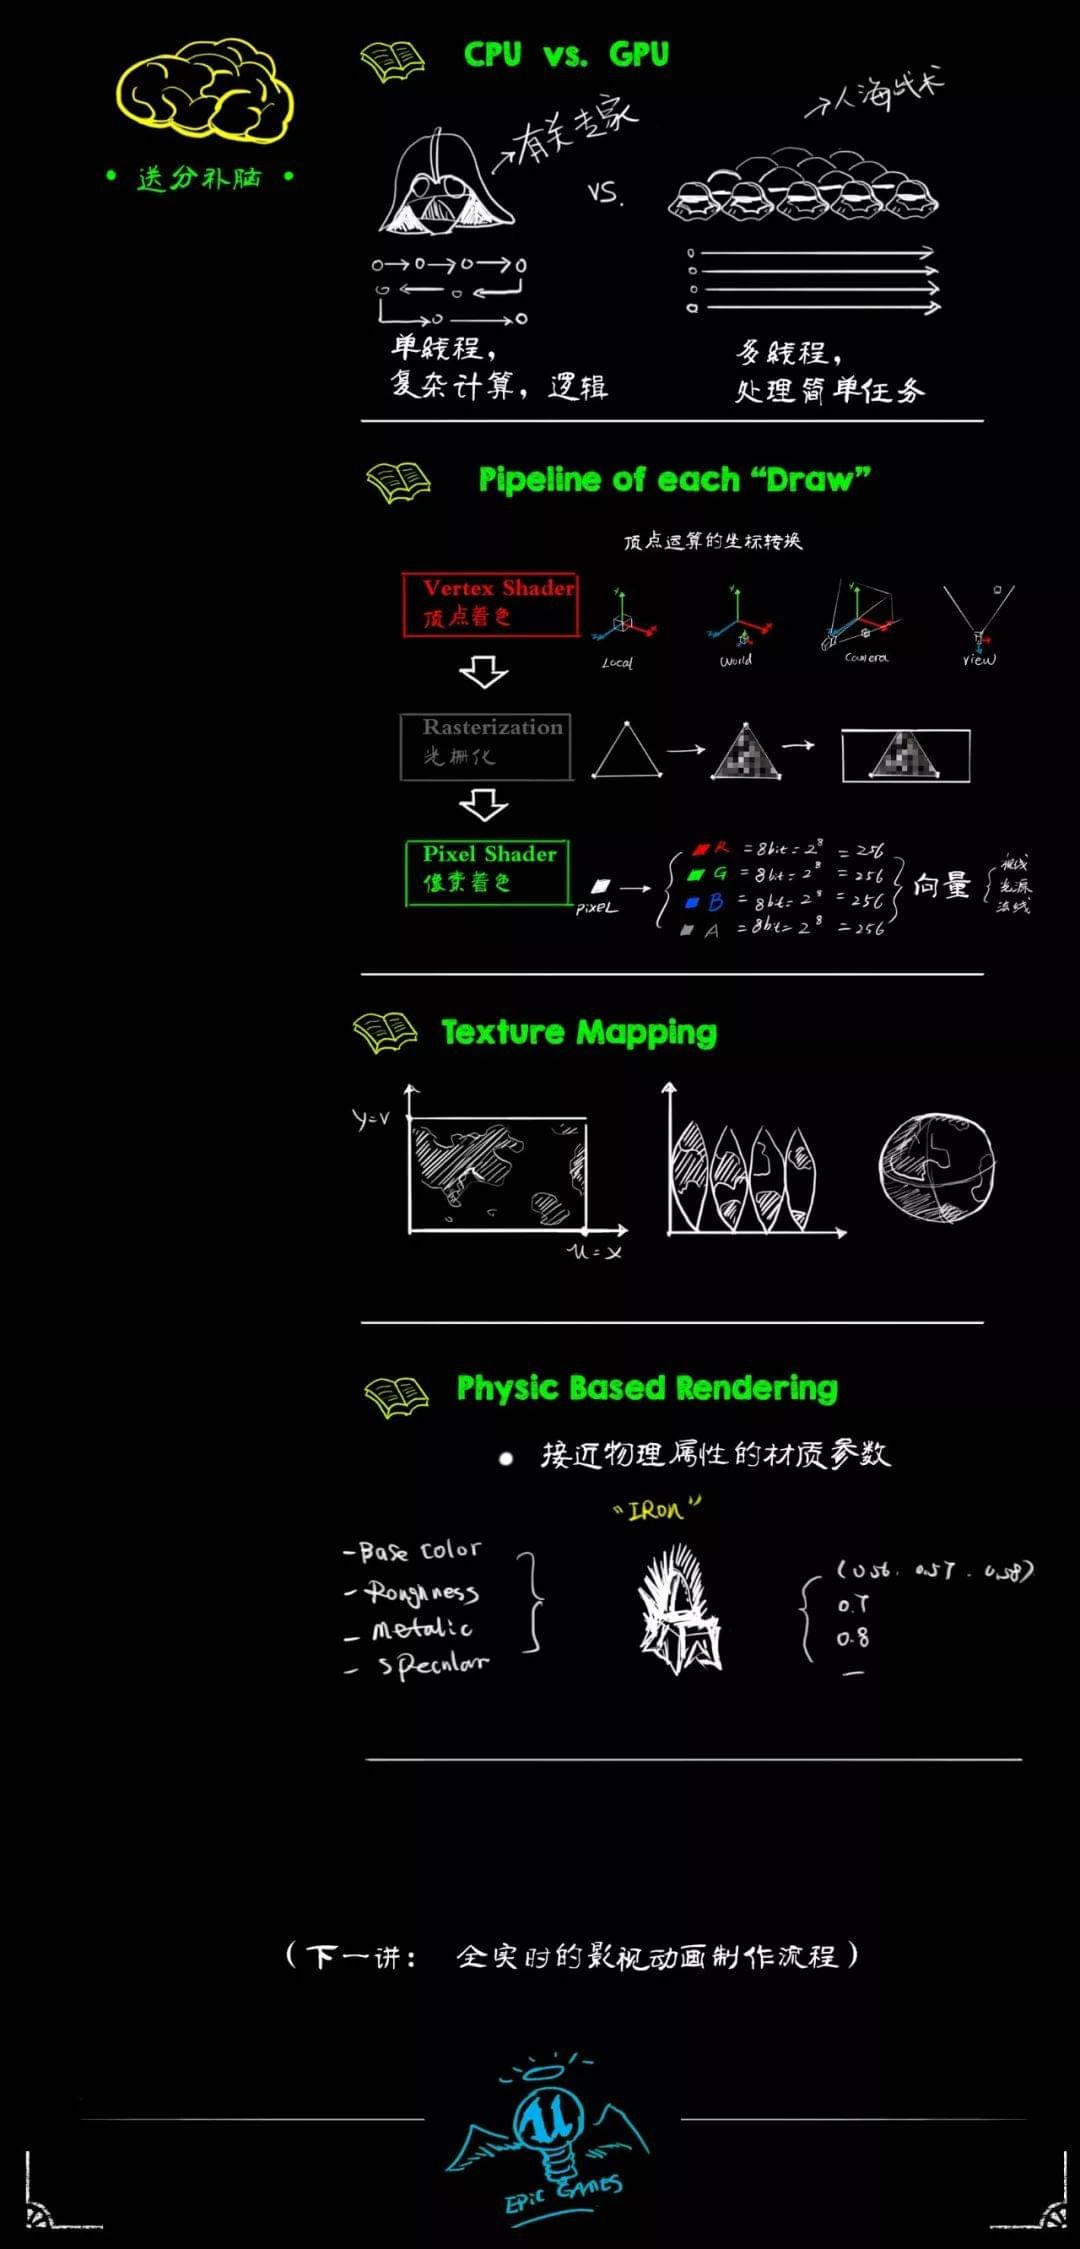 CPU vs. GPU
• 送分补脑 •
有关专家
人海战术
VS.
单线程，
复杂计算，逻辑
多线程，
处理简单任务
Pipeline of each “Draw”
顶点运算的坐标转换
Vertex Shader
顶点着色
Y
X
Z
Local
World
Camera
View
Rasterization
光栅化
Pixel Shader
像素着色
PixeL
R = 8bit = 2⁸ = 256
G = 8bit = 2⁸ = 256
B = 8bit = 2⁸ = 256
A = 8bit = 2⁸ = 256
向量
视线
光源
法线
Texture Mapping
y=v
u=x
Physic Based Rendering
• 接近物理属性的材质参数
“IRon”
- Base Color
- Roughness
- Metalic
- Specular
(0.56, 0.57, 0.58)
0.7
0.8
—
（下一讲： 全实时的影视动画制作流程）
U
EPiC GAMES